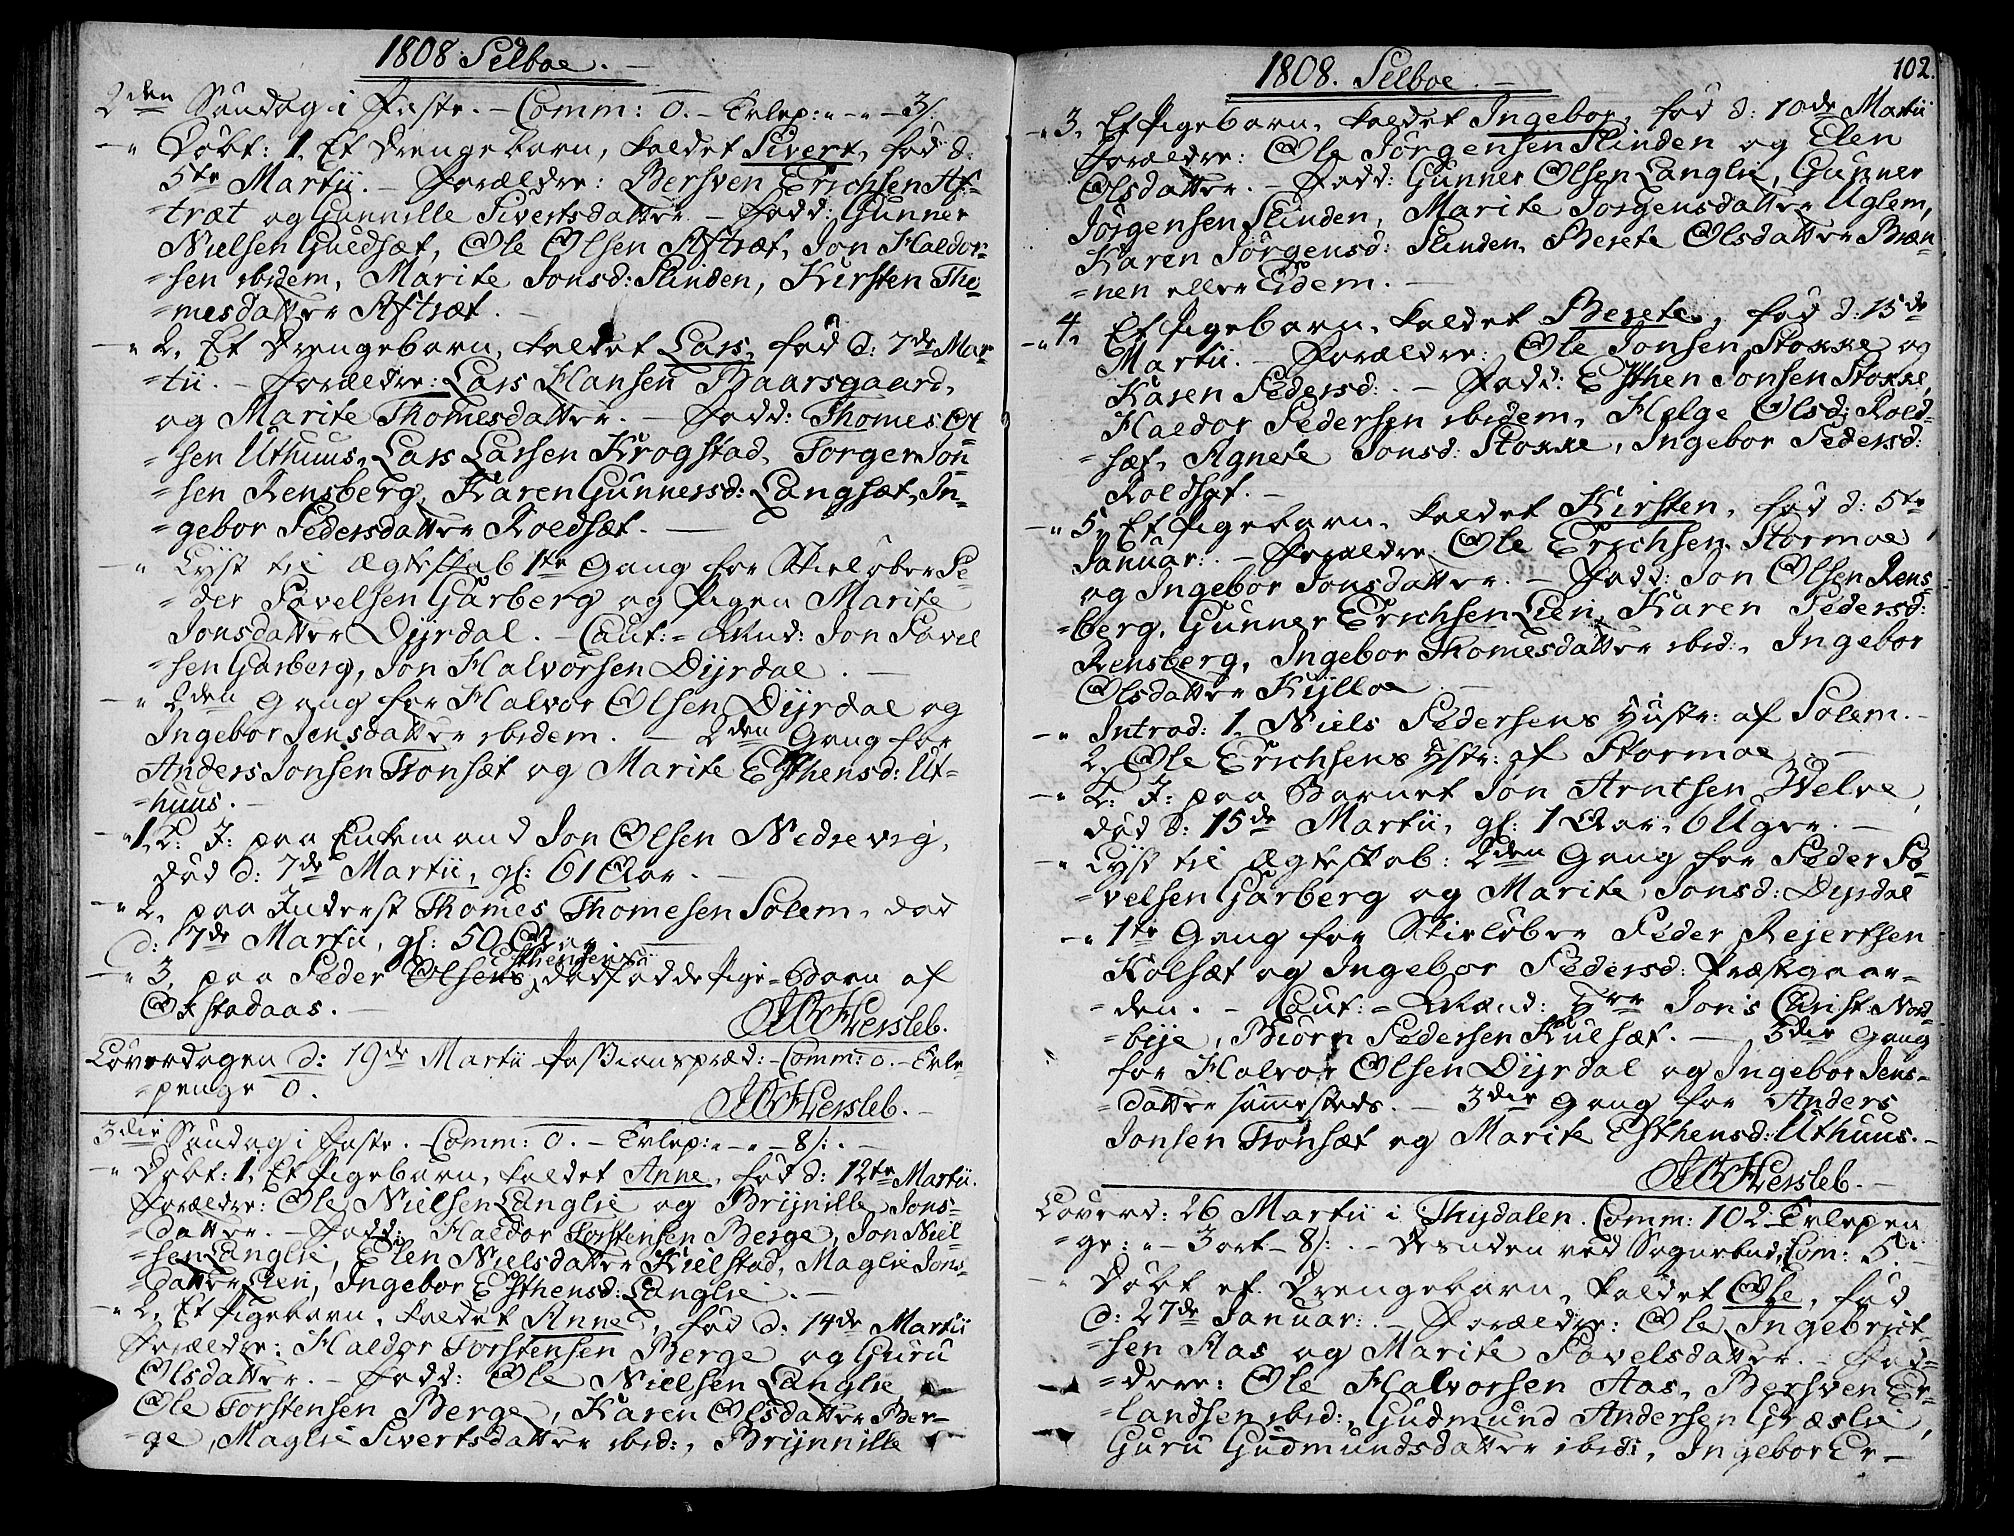 1808 Selboe.
2den Søndag i Faste. – Comm: 0. – Tvlep: " – " – 3/:
– " Døbt: 1, Et Drengebarn, kaldet Sivert, fød d:
5te Martii. – Forældre: Bersven Erichsen Af-
=træt og Gunnille Sivertsdatter – Fadd: Gunner
Nielsen Guldsæt, Ole Olsen Aftræt, Jon Haldor-
=sen ibidem, Marite Jonsd: Slinden, Kirsten Tho-
=mesdatter Aftræt. –
– " 2, Et Drengebarn, kaldet Lars, fød d: 7de Mar-
=tii. – Forældre: Lars Hansen Baarsgaard,
og Marite Thomesdatter. – Fadd: Thomes Ol
=sen Uthuus, Lars Larsen Krogstad, Torger Jon
=sen Rensberg, Karen Gunnersd: Langsæt, In-
=gebor Pedersdatter Roldsæt. –
– " Lyst til Ægteskab 1te Gang for Skieløber Pe-
=der Povelsen Garberg og Pigen Marite
Jonsdatter Dyrdal. – Caut: = Mænd: Jon Povel
=sen Garberg, Jon Halvorsen Dyrdal. –
– " 2den Gang for Halvor Olsen Dyrdal og
Ingebor Jensdatter ibidem. – 2den Gang for
Anders Jonsen Tronsæt og Marite Esthensd: Ut-
=huus. –
– " 1, L: J: paa Enkemand Jon Olsen Nedrevig,
død d: 7de Martii, gl: 61 Aar. –
– " 2, paa Inderst Thomes Thomesen Solem, død
d: 7de Martii, gl: 50 Aar –
Esthensens
– " 3, paa Peder Olsens dødfødde Pige-Barn af
Okstadaas. –
Hersleb.
Løverdagen d: 19de Martii Passionspræd: – Comm: 0. – Tvle-
=penge 0.
Hersleb. –
3die Søndag i Faste. Comm: 0. – Tvlep: – " – 8/: . –
– " Døbt: 1, Et Pigebarn, kaldet Anne, fød d: 12te Martii.
Forældre: Ole Nielsen Langlie og Brynille Jons-
=datter. – Fadd: Haldor Torstensen Berge, Jon Niel-
=sen Langlie, Elen Nielsdatter Kielstad, Maglie Jons-
=datter Lien, Ingebor Esthensd: Langlie. –
– " 2, Et Pigebarn, kaldet Anne, fød d: 14de Martii
Forældre: Haldor Torstensen Berge og Guru
Olsdatter. – Fadd: Ole Nielsen Langlie,
Ole Torstensen Berge, Karen Olsdatter Ber-
=ge, Maglie Sivertsdatter ibid:, Brynnille
1808. Selboe. –
102.
– " 3, Et Pigebarn, kaldet Ingebor, fød d: 10de Martii
Forældre: Ole Jørgensen Slinden og Elen
Olsdatter. – Fadd: Gunner Olsen Langlie, Gunner
Jørgensen Slinden, Marite Jorgensdatter Uglem,
Karen Jörgensd: Slinden, Berete Olsdatter Bræn-
=nen eller Eidem. –
– " 4, Et Pigebarn, kaldet Berete, fød d: 15de
Martii. – Forældre: Ole Jonsen Stokke og
Karen Pedersd: – Fadd: Esthen Jonsen Stokke,
Haldor Pedersen ibidem, Helge Olsd: Rold-
=sæt, Agnete Jonsd: Stokke, Ingebor Pedersd:
Roldsæt. –
– " 5, Et Pigebarn, kaldet Kirsten, fød d: 5te
Januar: – Forældre Ole Erichsen Stormoe,
og Ingebor Jonsdatter. – Fadd: Jon Olsen Rens-
=berg, Gunner Erichsen Lien, Karen Pedersd:
Rensberg, Ingebor Thomesdatter ibid:, Ingebor
Olsdatter Kylloe –
– " Introd: 1, Niels Pedersens Hustr: af Solem. –
2, Ole Erichsens Hstr: af Stormoe. –
– " L: J: paa Barnet Jon Arntsen Welve,
død d: 15de Martii, gl: 1 Aar, 6 Uger. –
– " Lyst til Ægteskab: 2den Gang for Peder Po
=velsen Garberg og Marite Jonsd: Dyrdal
– " 1te Gang for Skieløber Peder Rejertsen
Kolsæt og Ingebor Pedersd: Præstgaar-
=den. – Caut: = Mænd: Hrr Jonis Christ: Nord-
=bye, Biørn Pedersen Kulsæt. – 3die Gang
for Halvor Olsen Dyrdal og Ingebor Jens-
=datter sammesteds. – 3die Gang for Anders
Jonsen Tronsæt og Marite Esthensd: Uthuus. –
Hersleb. –
Løverd: 26 Martii i Thydalen. Comm: 102. Tvlepen
=ge: " – 3 ort – 8/: . – Desuden ved Sognebud, Com: 5. –
– " Døbt et Drengebarn, kaldet Ole, fød
d: 27de Januar: . – Forældre: Ole Ingebrigt-
=sen Aas og Marite Povelsdatter. – Fad-
=dere: Ole Halvorsen Aas, Bersven Er-
=landsen ibid:, Gudmund Andersen Græslie,
Guru Gudmundsdatter ibid:, Ingebor Er-